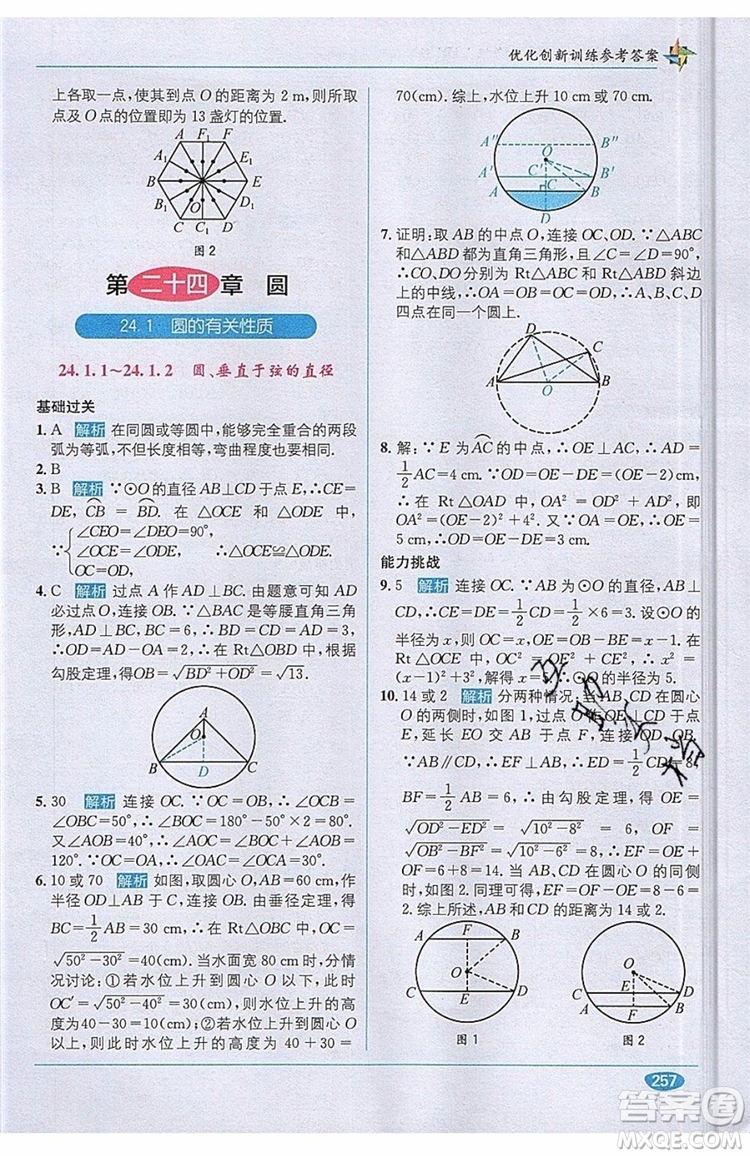 优化创新训练参考答案
上各取一点,使其到点 O 的距离为 2 m,则所取
点及点 O 的位置即为 13 盏灯的位置.
A F₁
A₁ F
B E
B₁ O E₁
C D₁
C₁ D
图 2
第 二十四 章 圆
24.1 圆的有关性质
24.1.1~24.1.2 圆、垂直于弦的直径
基础过关
1. A 解析 在同圆或等圆中,能够完全重合的两段
弧为等弧,不但长度相等,弯曲程度也要相同.
2. B
3. B 解析 ∵⊙O 的直径 AB⊥CD 于点 E,∴CE=
DE, C͡B = B͡D. 在△OCE 和△ODE 中,
∵{∠CEO=∠DEO=90°,
∴△OCE≌△ODE.
4. C 解析 过点 A 作 AD⊥BC. 由题意可知 AD
必过点 O,连接 OB. ∵△BAC 是等腰直角三角
形,AD⊥BC,∴BD=CD=AD=3,∴OD=
AD-OA=2,∴在 Rt△OBD 中,根据
勾股定理,得OB=√(BD²+OD²)=√13.
A
O
B D C
5. 30 解析 连接 OC. ∵OB=OC,∴∠OCB=
∠OBC=50°,∴∠BOC=180°-50°×2=80°.
又∵∠AOB=40°,∴∠AOC=∠AOB+∠BOC=
120°. ∵OC=OA,∴∠OAC=∠OCA=30°.
6. 10 或 70 解析 如图,取圆心 O,AB=60 cm,作
半径 OD⊥AB 于点 C,连接 OB. 由垂径定理,得
BC=1/2 AB=30 cm,∴在 Rt△OBC 中,OC=
√(50²-30²)=40(cm). 当水面宽 80 cm 时,分情
况讨论:①若水位上升到圆心 O 以下,此时
OC′=√(50²-40²)=30(cm),则水位上升的高度
为40-30=10(cm);②若水位上升到圆心 O
以上,则此时水位上升的高度为 40+30=
70(cm). 综上,水位上升 10 cm 或 70 cm.
A″ B″
O
A′ C′ B′
A C B
D
7. 证明:取 AB 的中点 O,连接 OC,OD. ∵△ABC
和△ABD 都为直角三角形,且∠C=∠D=90°,
∴OC,OD 分别为 Rt△ABC 和 Rt△ABD 斜边
上的中线,∴OA=OB=OC=OD,∴A,B,C,D
四点在同一个圆上.
D
C
A O B
8. 解:∵E 为A͡C的中点,∴OE⊥AC,∴AD=
1/2 AC=4 cm. ∵OD=OE-DE=(OE-2)cm,
∴在 Rt△OAD 中,OA²=OD²+AD²,即
OA²=(OE-2)²+4². 又∵OA=OE,∴OE²=
(OE-2)²+4²,∴OE=5,∴OD=OE-DE=3 cm.
能力挑战
9. 5 解析 连接 OC. ∵AB 为⊙O 的直径,AB⊥
CD,∴CE=DE=1/2 CD=1/2×6=3. 设⊙O 的
半径为 x,则 OC=x,OE=OB-BE=x-1. 在
Rt△OCE 中,OC²=OE²+CE²,∴x²=
(x-1)²+3²,解得 x=5,∴⊙O 的半径为 5.
10. 14 或 2 解析 分两种情况:当 AB,CD 在圆心
O 的两侧时,如图 1,过点 O 作 OE⊥CD 于点
E,延长 EO 交 AB 于点 F,连接 OD,OB.
∵AB∥CD,∴EF⊥AB,∴ED=1/2 CD=8,
BF=1/2 AB=6,∴由勾股定理,得 OE=
√(OD²-ED²)=√(10²-8²)=6,OF=
√(OB²-BF²)=√(10²-6²)=8,∴EF=OE+
OF=6+8=14. 当 AB 与 CD 在圆心 O 的同侧
时,如图 2,同理可得 EF=OF-OE=8-6=
2. 综上所述,AB 和 CD 的距离为 14 或 2.
A F B
O
C E D
图 1
O
C E D
A F B
图 2
257
答案圈
MXQE.COM